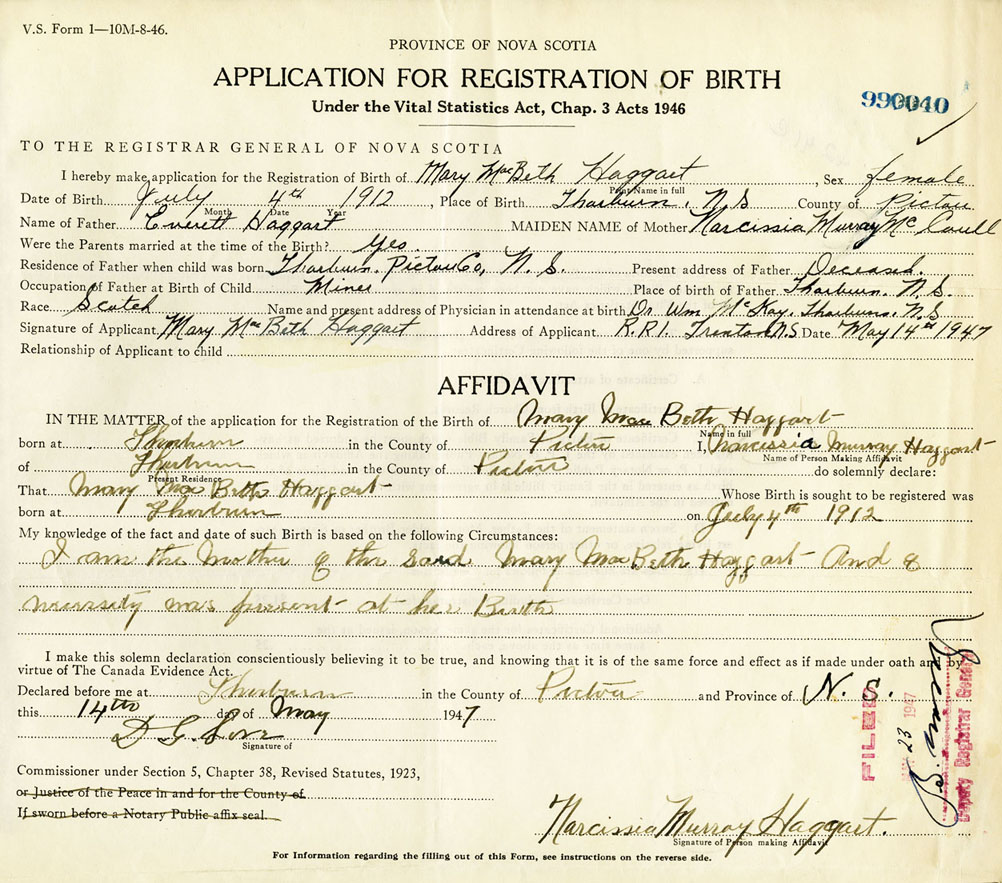 V.S. Form 1—10M-8-46.
PROVINCE OF NOVA SCOTIA
APPLICATION FOR REGISTRATION OF BIRTH
990040
Under the Vital Statistics Act, Chap. 3 Acts 1946
TO THE REGISTRAR GENERAL OF NOVA SCOTIA
I hereby make application for the Registration of Birth of Mary MacBeth Haggart, Sex female
Print Name in full
Date of Birth July 4th 1912, Place of Birth Thorburn, N.S County of Pictou
Month Date Year
Name of Father Everett Haggart MAIDEN NAME of Mother Narcissia Murray Mc
Were the Parents married at the time of the Birth? Yes.
Residence of Father when child was born Thorburn, Pictou Co, N.S. Present address of Father Deceased.
Occupation of Father at Birth of Child Miner Place of birth of Father Thorburn, N.S.
Race Scotch Name and present address of Physician in attendance at birth Dr. Wm. McKay, Thorburn, N.S
Signature of Applicant Mary MacBeth Haggart Address of Applicant R.R.1. Trenton N.S Date May 14th 1947
Relationship of Applicant to child
AFFIDAVIT
IN THE MATTER of the application for the Registration of the Birth of Mary Mac Beth Haggart
Name in full
born at Thorburn in the County of Pictou I, Narcissia Murray Haggart
Name of Person Making Affidavit
of Thorburn in the County of Pictou do solemnly declare:
Present Residence
That Mary Mac Beth Haggart Whose Birth is sought to be registered was
born at Thorburn on July 4th 1912
My knowledge of the fact and date of such Birth is based on the following Circumstances:
I am the Mother of the said Mary MacBeth Haggart And of
necessity was present at her Birth
I make this solemn declaration conscientiously believing it to be true, and knowing that it is of the same force and effect as if made under oath and by
virtue of The Canada Evidence Act.
Declared before me at Thorburn in the County of Pictou and Province of N. S.
this 14th day of May 1947
D G
Signature of
FILED
23 1947
Deputy Registrar General
Commissioner under Section 5, Chapter 38, Revised Statutes, 1923,
or Justice of the Peace in and for the County of
If sworn before a Notary Public affix seal.
Narcissia Murray Haggart.
Signature of Person making Affidavit
For Information regarding the filling out of this Form, see instructions on the reverse side.